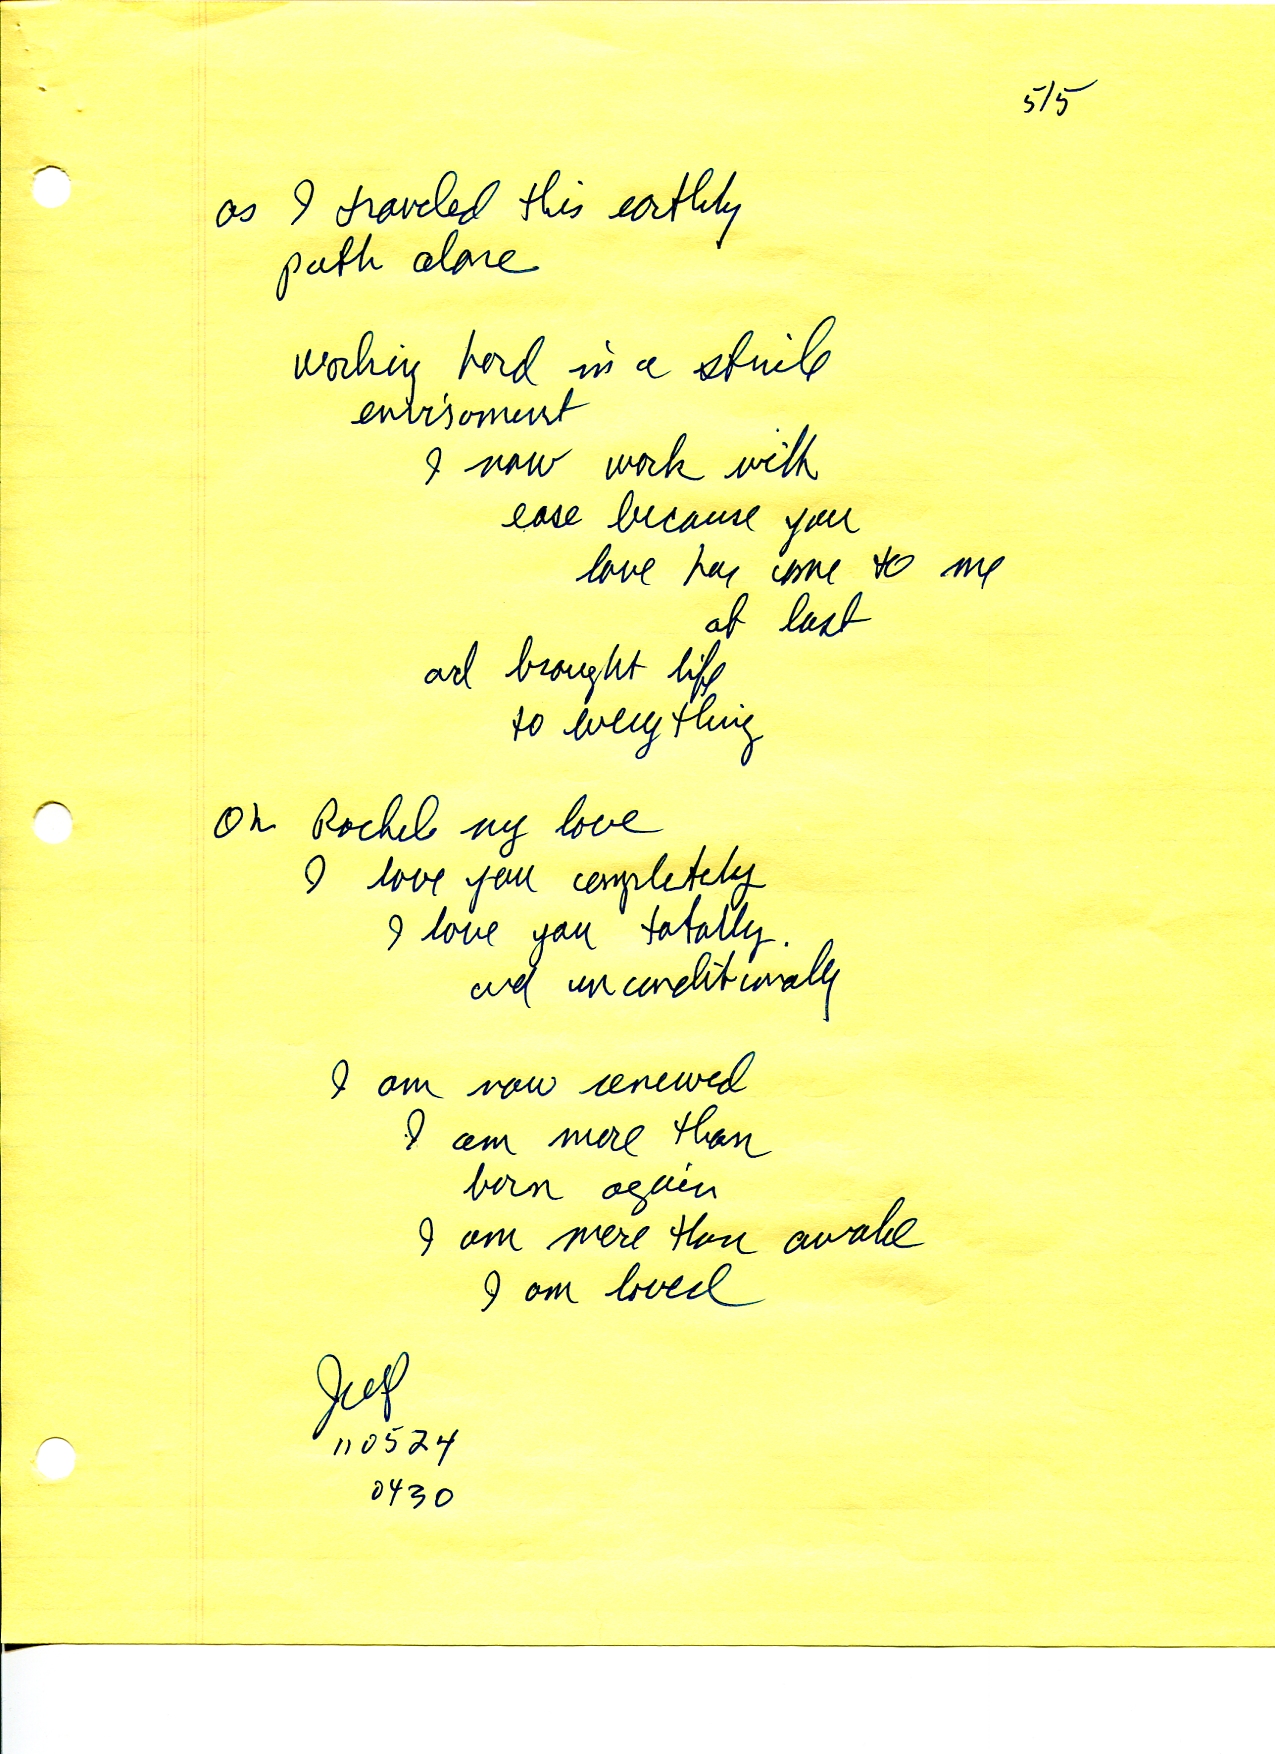 5/5
as I traveled this earthly
path alone
working hard in a sterile
envirsoment
I now work with
ease because you
love has come to me
at last
and brought life
to everything
Oh Rachel my love
I love you completely
I love you totally.
and unconditionaly
I am now renewed
I am more than
born again
I am more than awake
I am loved
110524
0430